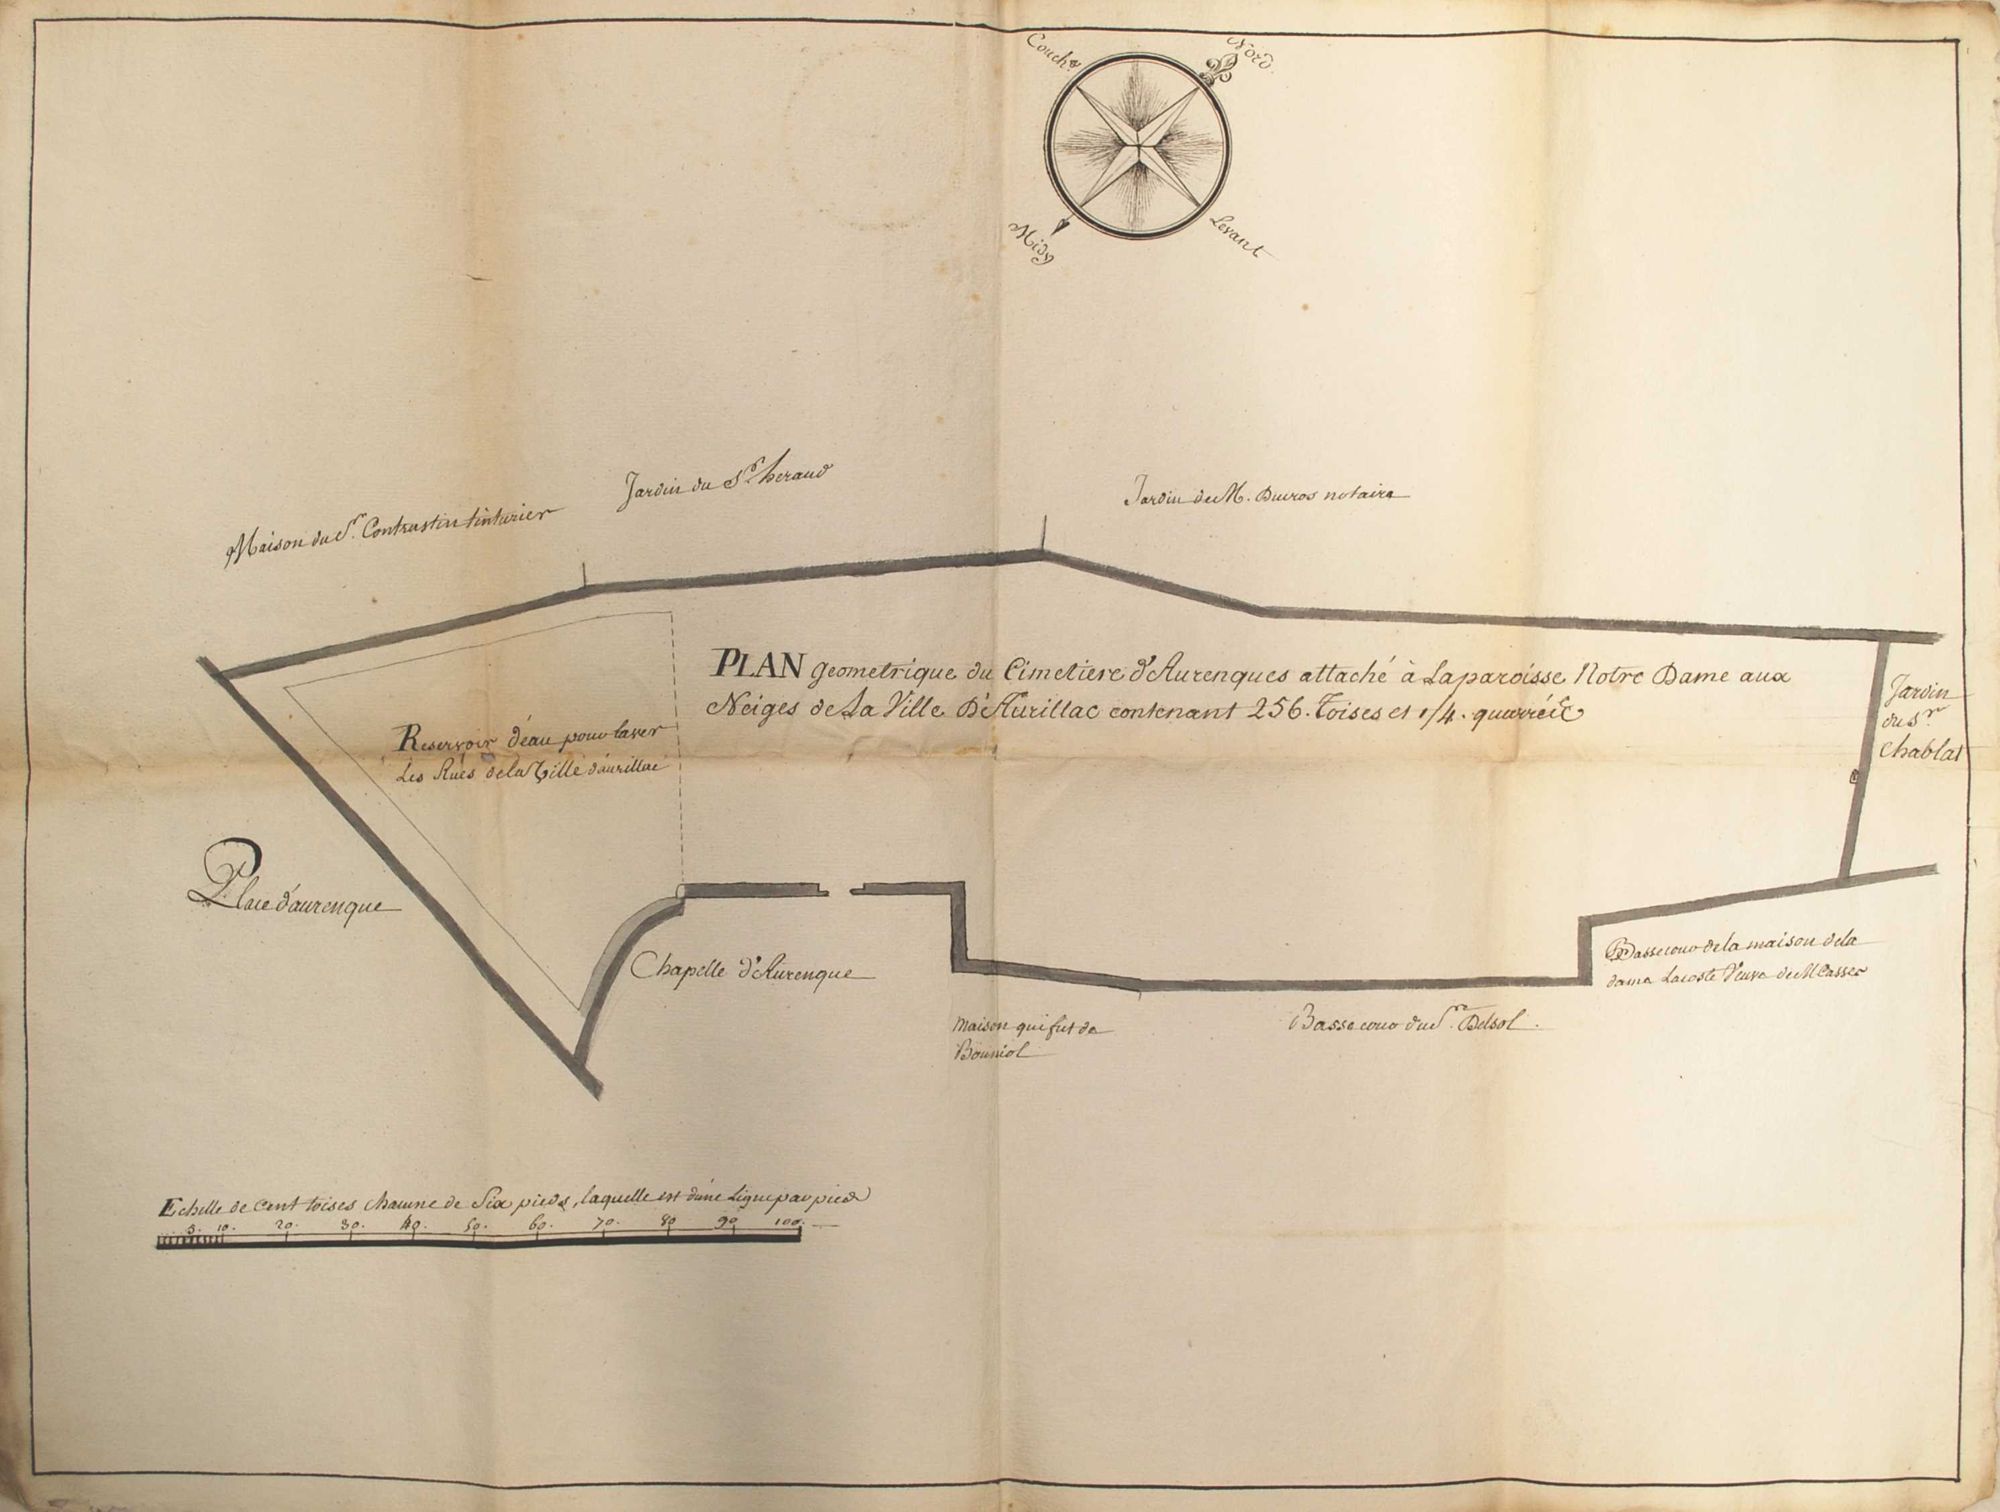 Couch.t
Nord.
Midy
Levant
Maison du Sr. Contrastin tinturier
Jardin du Sr. heraud
Jardin de M. Duclos notaire
PLAN Geometrique du Cimetiere d'Aurenques attaché à Laparoisse Notre Dame aux
Neiges de La Ville D'Aurillac contenant 256. Toises et 1/4. quarrée
Jardin
du Sr.
Chablat
Reservoir d'eau pour laver
Les Rües de la Ville d'aurillac
Place d'aurenque
Chapelle d'Aurenque
Bassecour de la maison de la
dame Lacoste Veuve de M Passec
Maison qui fut de
Bouniol
Basse cour du Sr. Delsol.
Echelle de Cent toises chacune de Six pieds, laquelle est d'une Ligne par pied
5. 10. 20. 30. 40. 50. 60. 70. 80 90 100.